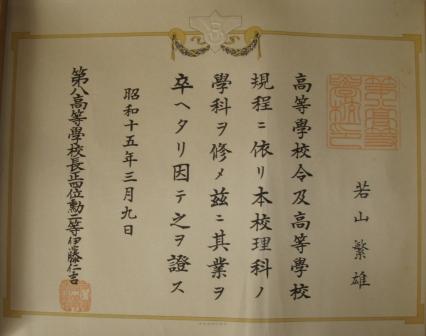 若山繁雄
高等學校令及高等學校
規程ニ依リ本校理科ノ
學科ヲ修メ茲ニ其業ヲ
卒ヘタリ因テ之ヲ證ス
昭和十五年三月九日
第八高等學校長正四位勳二等伊藤仁吉